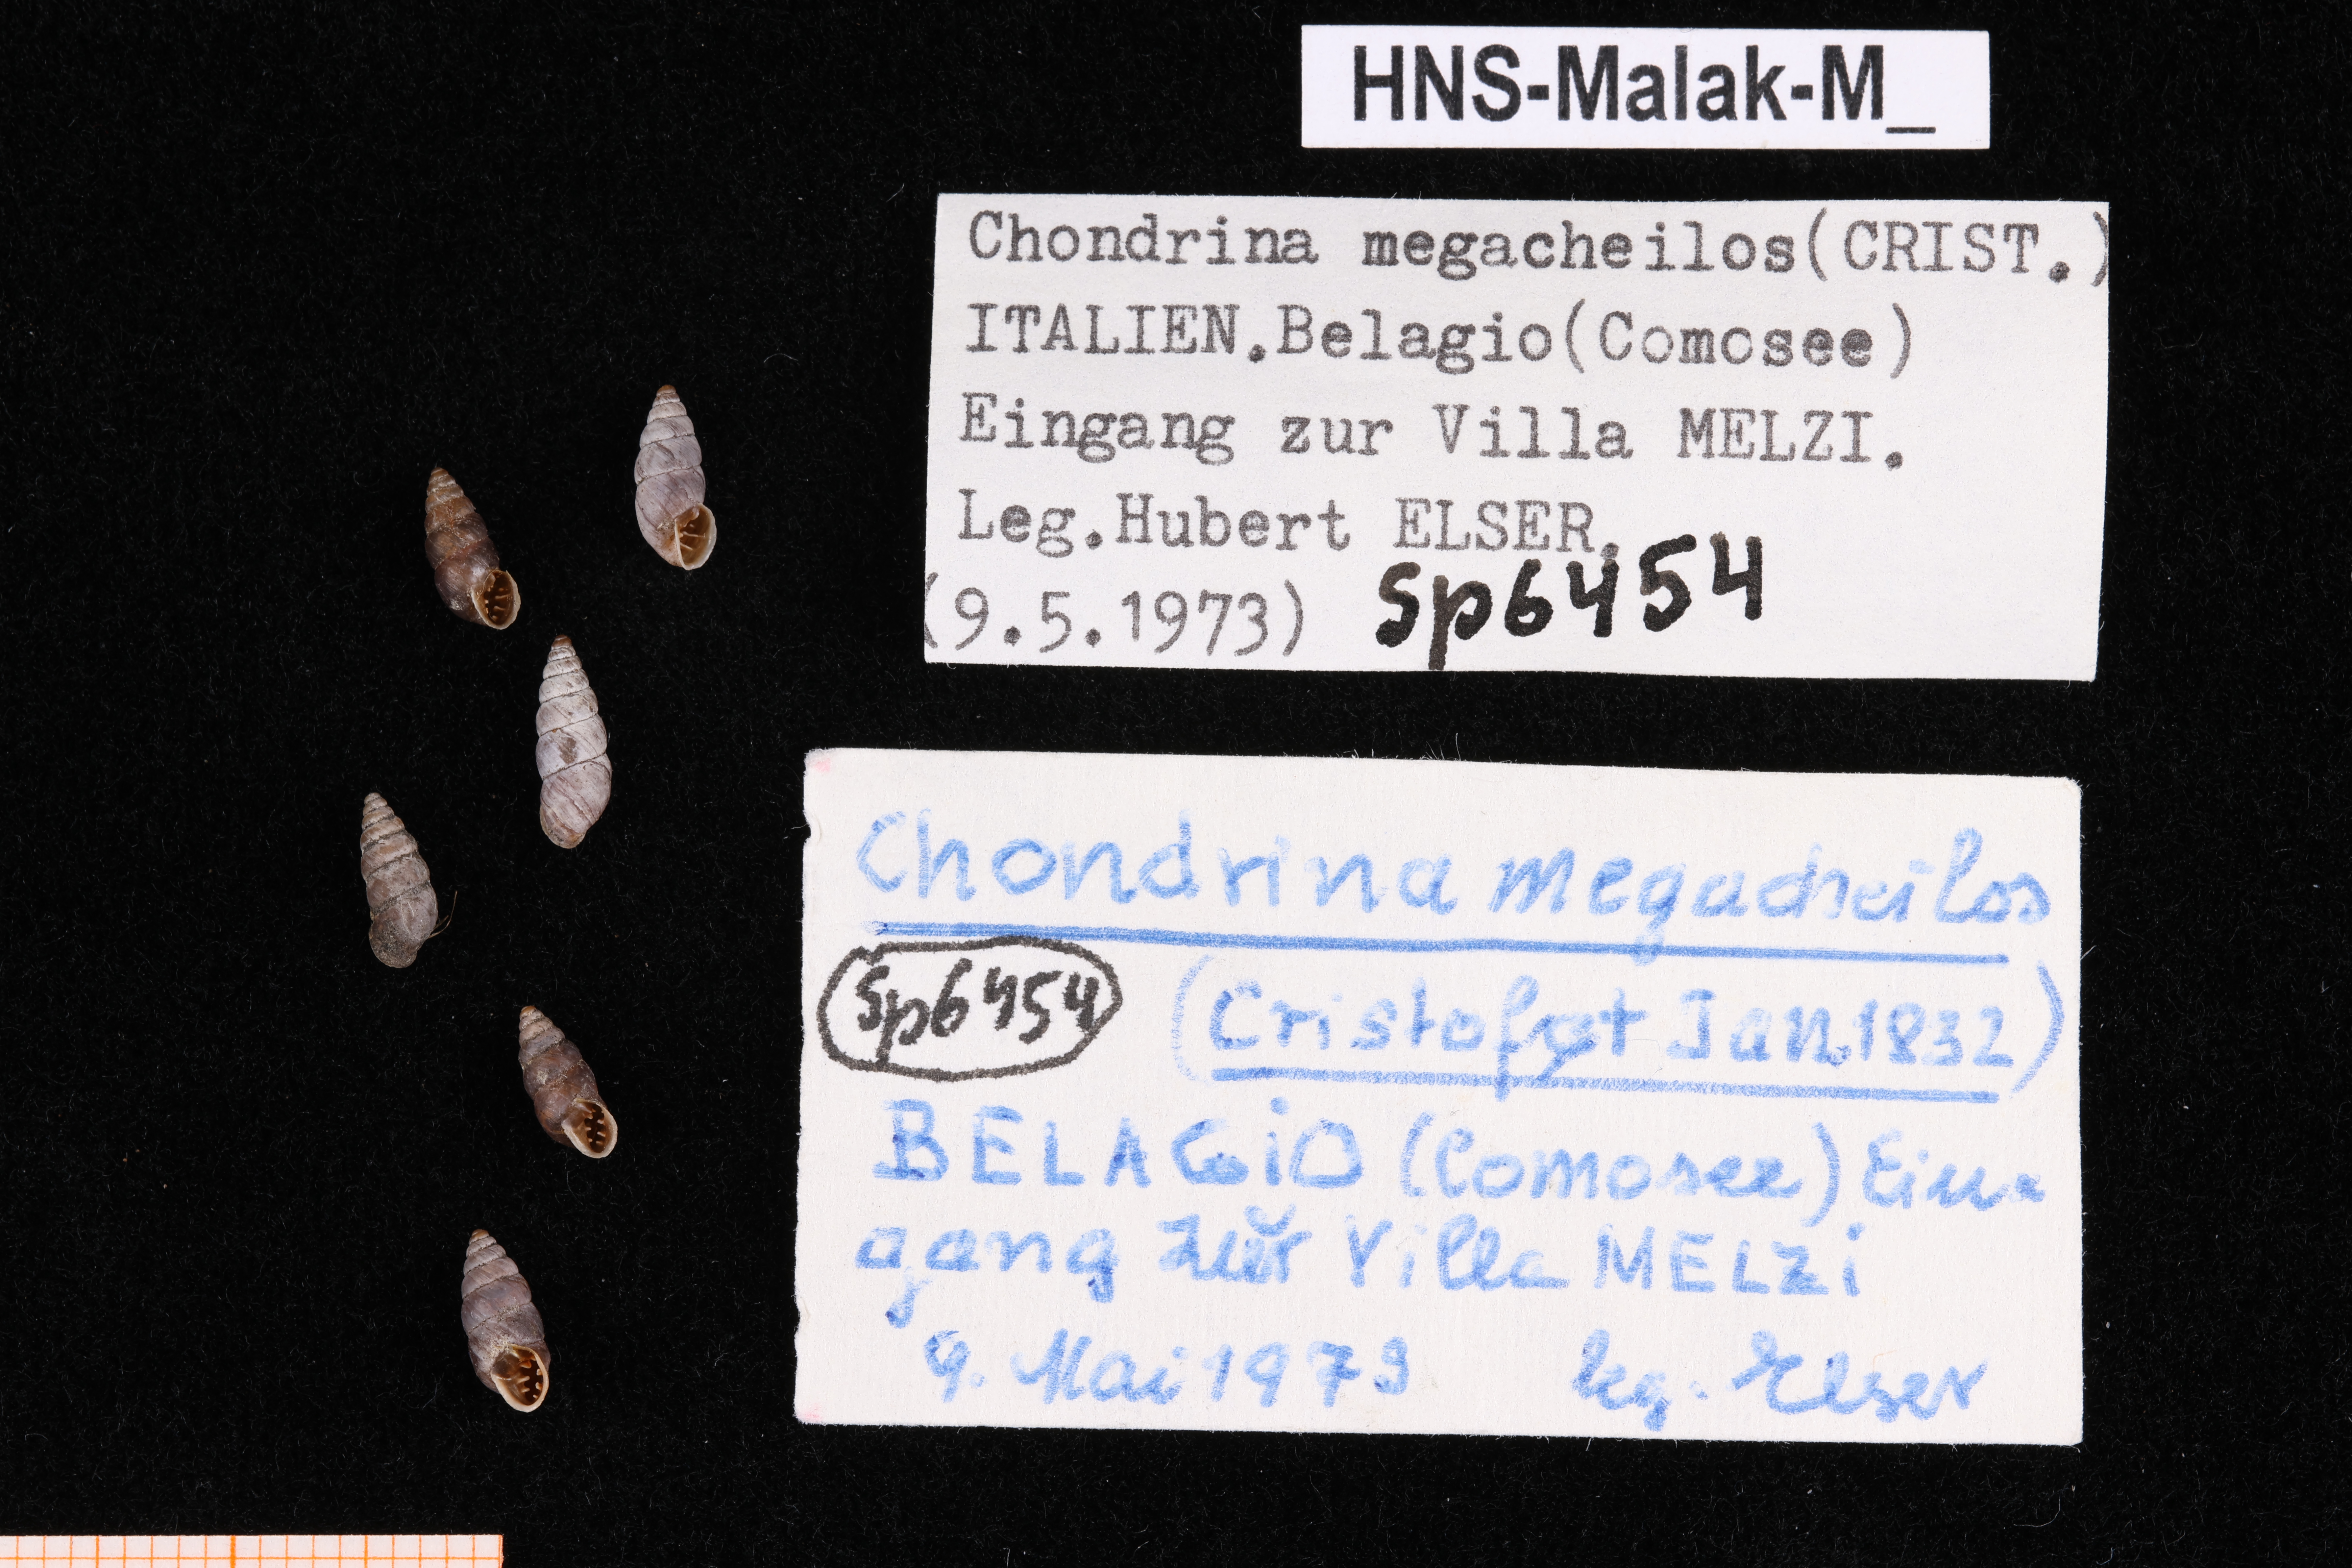 HNS-Malak-M_
Chondrina megacheilos(CRIST.)
ITALIEN.Belagio(Comosee)
Eingang zur Villa MELZI.
Leg.Hubert ELSER.
(9.5.1973) Sp6454
Chondrina megacheilos
Sp6454 (Cristof et Jan 1832)
BELAGiO (Comosee) Ein-
gang zŭr Villa MELZi
9. Mai 1973 leg. Elser